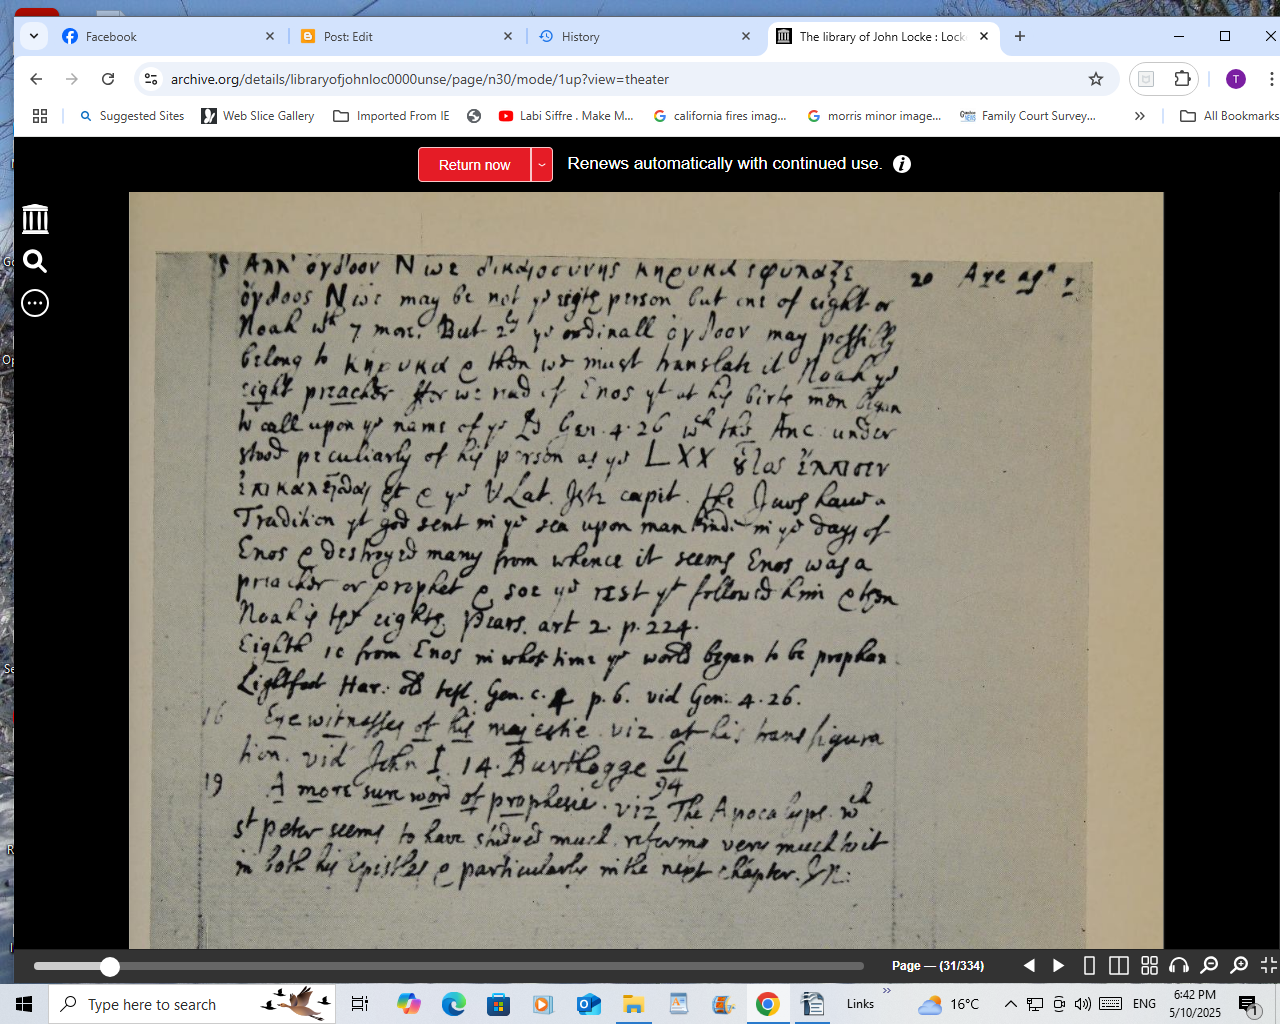 Facebook
Post: Edit
History
The library of John Locke : Lock
archive.org/details/libraryofjohnloc0000unse/page/n30/mode/1up?view=theater
T
Suggested Sites
Web Slice Gallery
Imported From IE
Labi Siffre . Make M...
california fires imag...
morris minor image...
Family Court Survey...
»
All Bookmarks
Return now
Renews automatically with continued use.
5 Αλλ' ογδοον Νωε δικαιοσυνης κηρυκα εφυλαξε
20 Are agn
ογδοος Νωε may be not ye eight person but one of eight or
Noah wth 7 more. But 2ly ye ordinall ογδοον may possibly
belong to κηρυκα & then we must translate it Noah ye
eight preacher for we read of Enos yt at his birth men began
to call upon ye name of ye Ld Gen. 4. 26 wch the Anc: under
stood peculiarly of his person as ye LXX ηλπισεν
& ye V Lat. Iste capit. The Jews have a
Tradition yt god sent in ye sea upon mankinde in ye days of
Enos & destroyed many from whence it seems Enos was a
preacher or prophet & soe ye rest yt followed him & then
Noah is the eight, Pears. art 2. p. 224.
Eighth ie from Enos in whose time ye world began to be prophan
Lightfoot Har: old test. Gen. c. 4 p. 6. vid Gen: 4. 26.
16 Eye witnesses of his majestie. viz at his transfigura
tion. vid John I. 14. Burthogge 61/94
19 A more sure word of prophesie. viz The Apocalyps. wch
st Peter seems to have studied much refering very much to it
in both his Epistles & particularly in the next chapter.
Page — (31/334)
Type here to search
Links
»
16°C
ENG
6:42 PM
5/10/2025
1